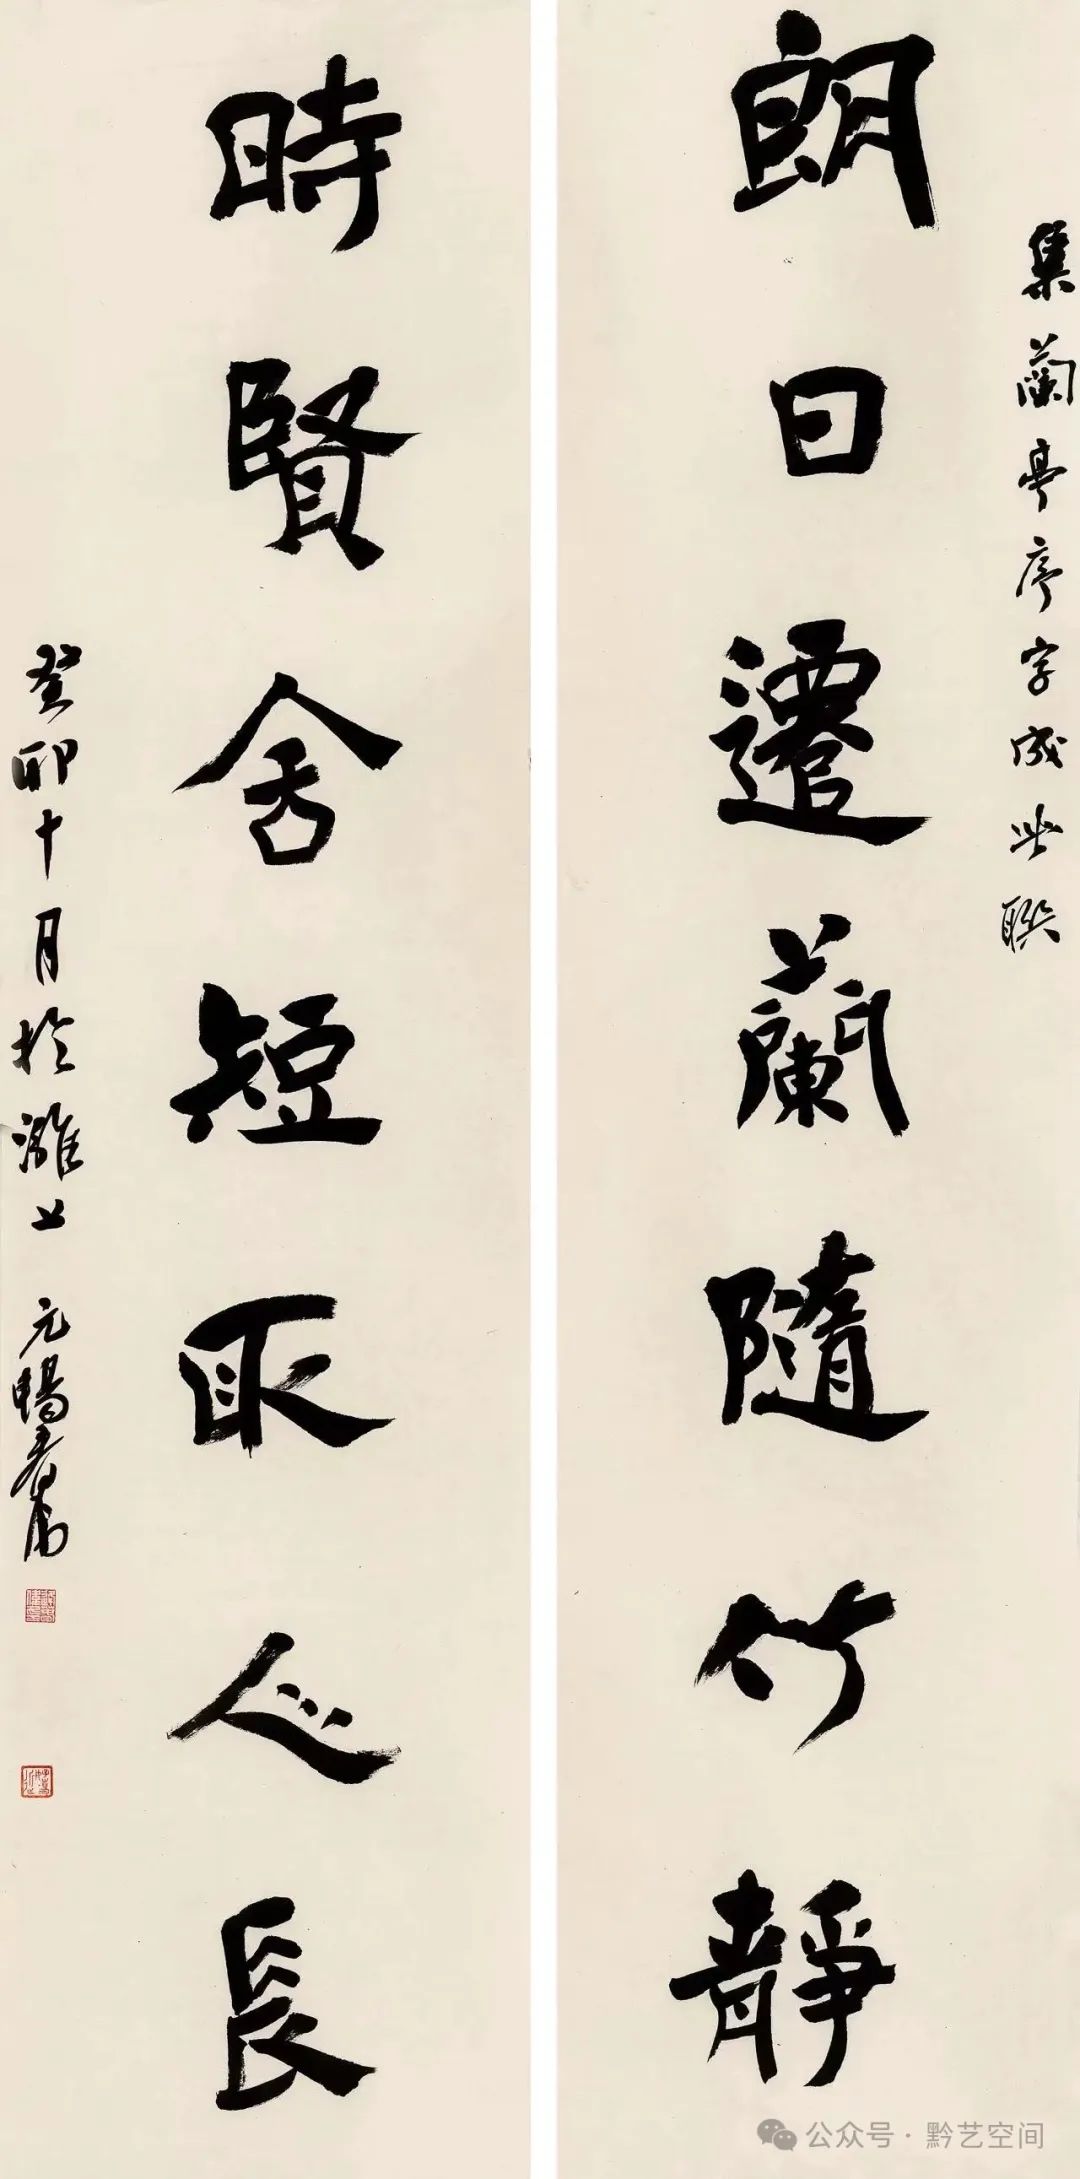 集蘭亭序字成此聯
朗日遷蘭隨竹静
時賢舍短取心長
癸卯十月於濰上 元暢
公众号·黔艺空间